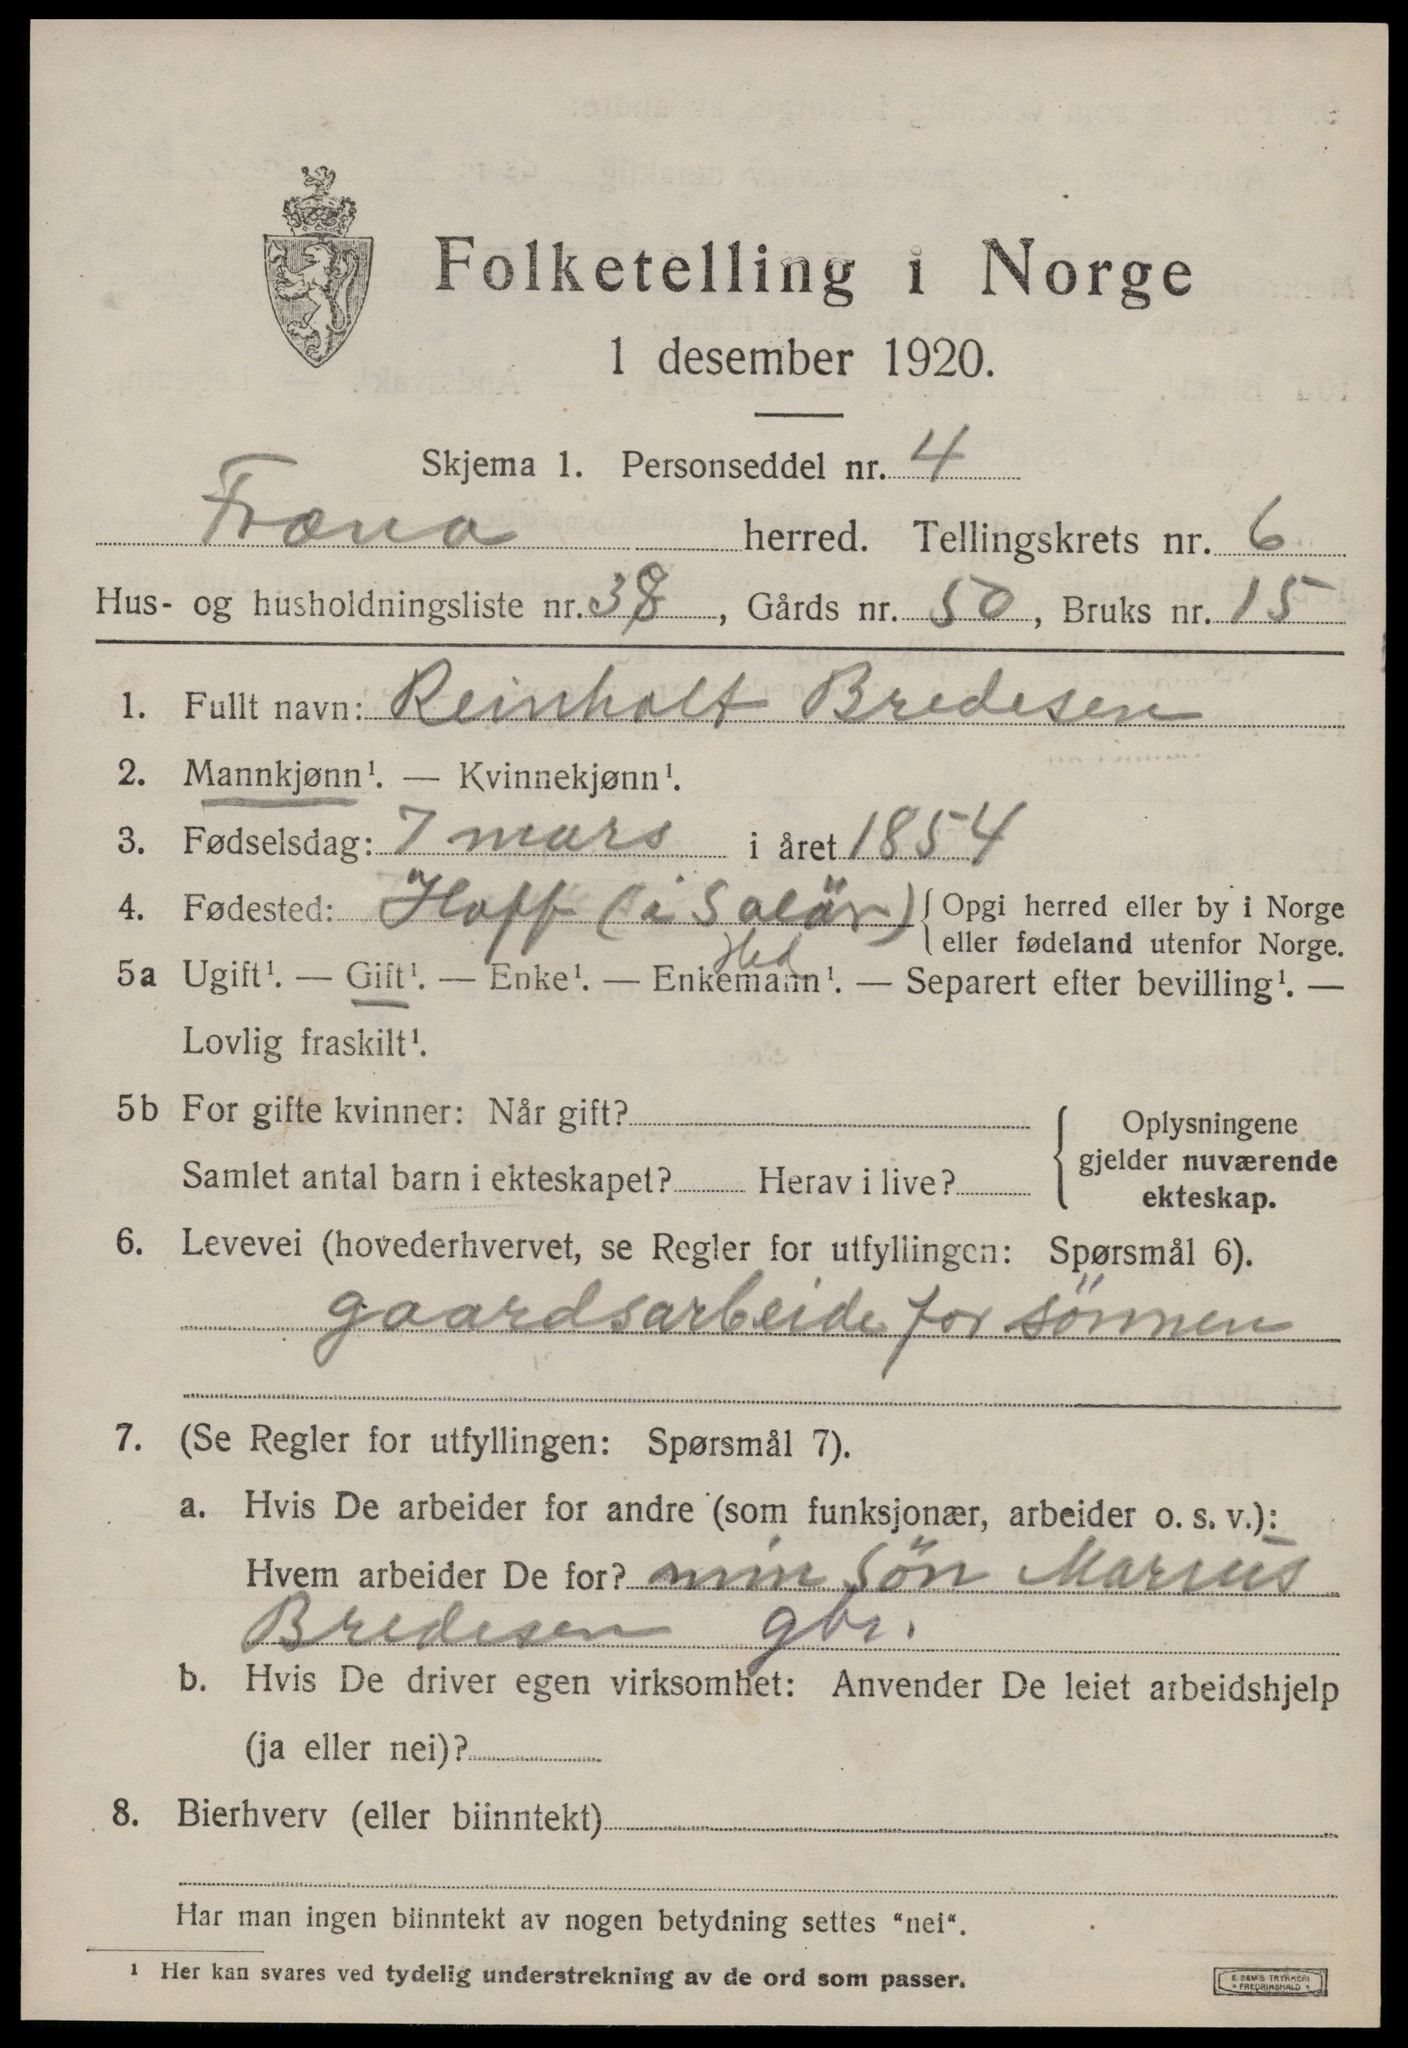 Folketelling i Norge
1 desember 1920.
Skjema 1. Personseddel nr. 4
Fræna herred. Tellingskrets nr. 6
Hus- og husholdningsliste nr. 38, Gårds nr. 50, Bruks nr. 15
1. Fullt navn: Reinholt Bredesen
2. Mannkjønn¹. — Kvinnekjønn¹.
3. Fødselsdag: 7 mars i året 1854
4. Fødested: Hoff (i Solör) { Opgi herred eller by i Norge
eller fødeland utenfor Norge.
Hed
5a Ugift¹. — Gift¹. — Enke¹. — Enkemann¹. — Separert efter bevilling¹. —
Lovlig fraskilt¹.
5b For gifte kvinner: Når gift?
Samlet antal barn i ekteskapet? Herav i live?
Oplysningene
gjelder nuværende
ekteskap.
6. Levevei (hovederhvervet, se Regler for utfyllingen: Spørsmål 6).
gaardsarbeide for sönnen
7. (Se Regler for utfyllingen: Spørsmål 7).
a. Hvis De arbeider for andre (som funksjonær, arbeider o. s. v.):
Hvem arbeider De for? min Sön Marius
Bredesen gbr.
b. Hvis De driver egen virksomhet: Anvender De leiet arbeidshjelp
(ja eller nei)?
8. Bierhverv (eller biinntekt)
Har man ingen biinntekt av nogen betydning settes "nei".
¹ Her kan svares ved tydelig understrekning av de ord som passer.
E. SEM'S TRYKKERI
* FREDRIKSHALD *